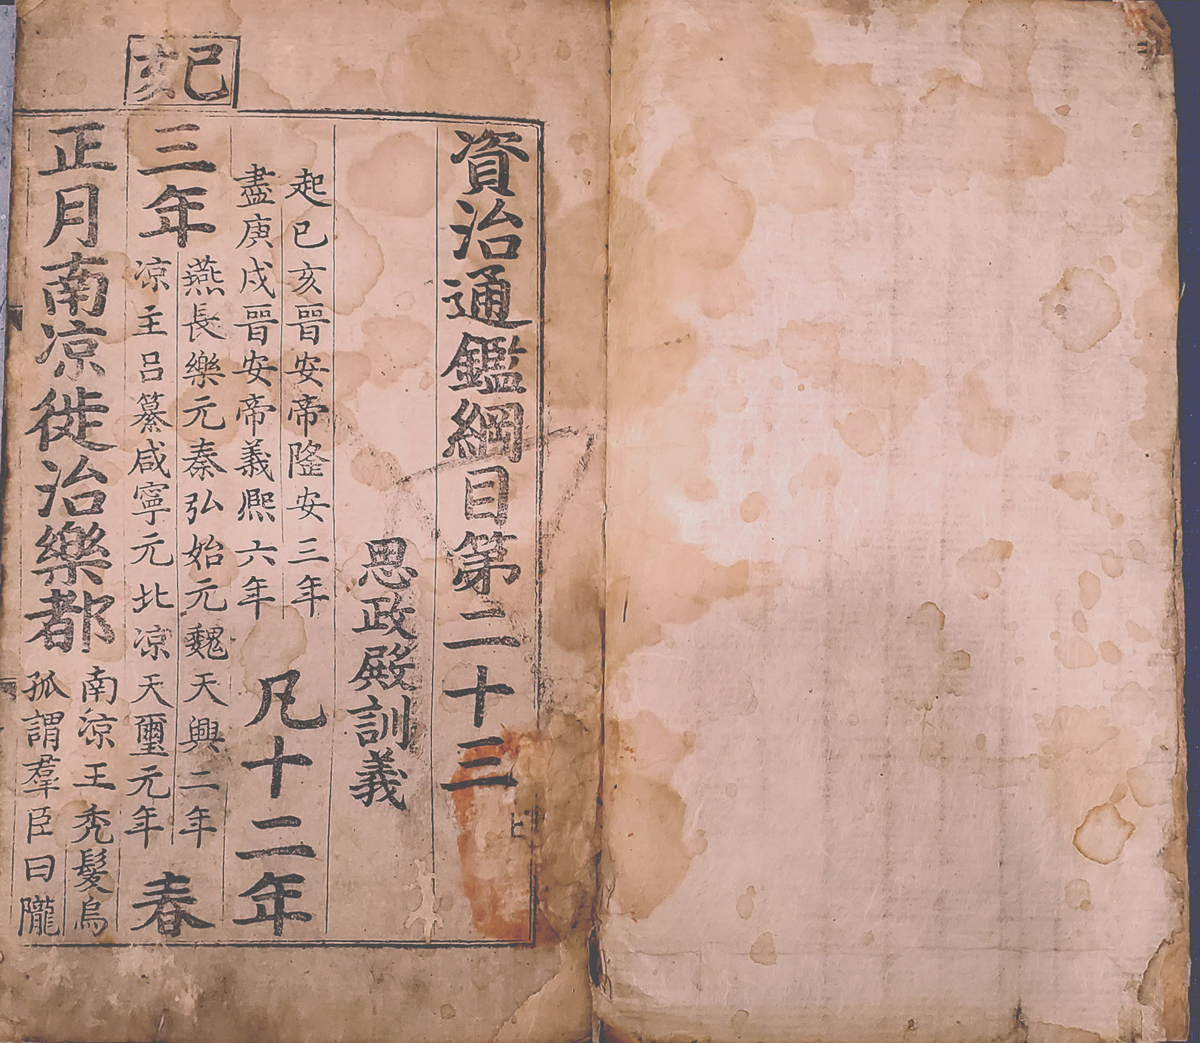 資治通鑑綱目第二十三上
思政殿訓義
起己亥晉安帝隆安三年
盡庚戌晉安帝義熙六年
凡十二年
己亥
三年
燕長樂元秦弘始元魏天興二年
凉主呂纂咸寧元北凉天璽元年
春
正月南凉徙治樂都
南凉王秃髮烏
孤謂羣臣曰隴